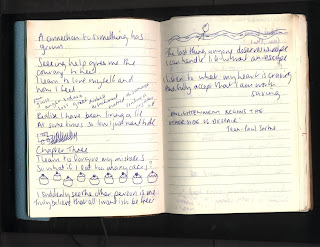 A connection to something has
grown
Seeking help gives me the
courage to heal
I learn to love myself and
how I feel
Realise I have been living a lie
At some times so low I just want to die
Chapter Three
I learn to forgive my mistakes
So what if I eat too many cakes?
I suddenly see the other person in me
truly believe that all I want is to be free
The last thing anyone deserves is
I can handle it without an escape
I listen to what my heart is craving
And fully accept that I am worth
Saving
ENLIGHTENMENT BEHIND THE
OTHER SIDE IS DESPAIR.
Jean-Paul Sartre